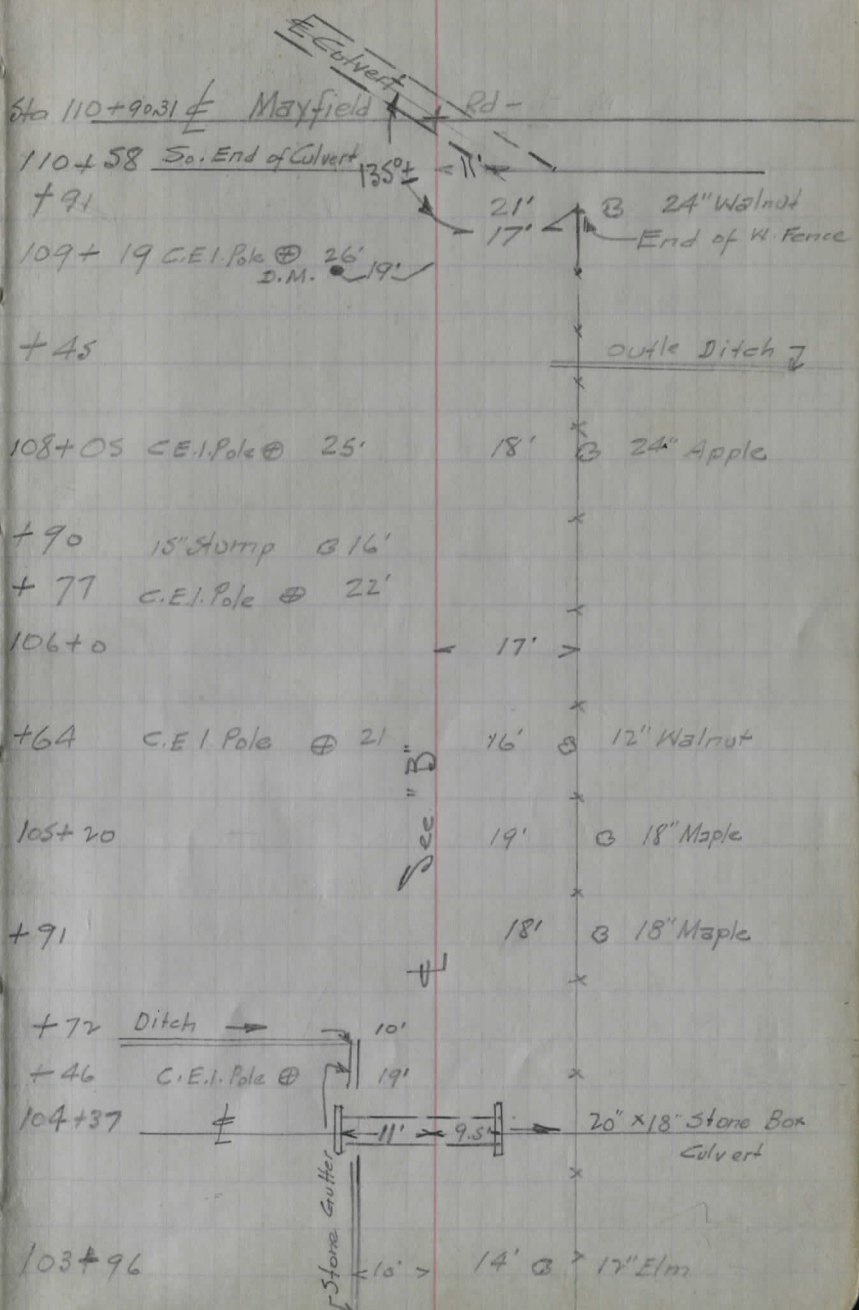 ℄ Culvert
Sta 110+90.31 ℄ Mayfield Rd-
110+58 So. End of Culvert 135°± 11'
+91 21' 24" Walnut
17' End of W. Fence
109+19 C.E.I. Pole ⊕ 26'
D.M. 19'
+45 Outle Ditch
108+05 C.E.I. Pole ⊕ 25' 18' 24" Apple
+90 15" Stump 16'
+77 C.E.I. Pole ⊕ 22'
106+0 17'
+64 C.E.I. Pole ⊕ 21 16' 12" Walnut
105+20 19' 18" Maple
+91 18' 18" Maple
℄ Sec "B"
+72 Ditch 10'
+46 C.E.I. Pole ⊕ 19'
104+37 ℄ 11' 9.5' 20" x 18" Stone Box
Culvert
Stone Gutter
103+96 10' 14' 12" Elm